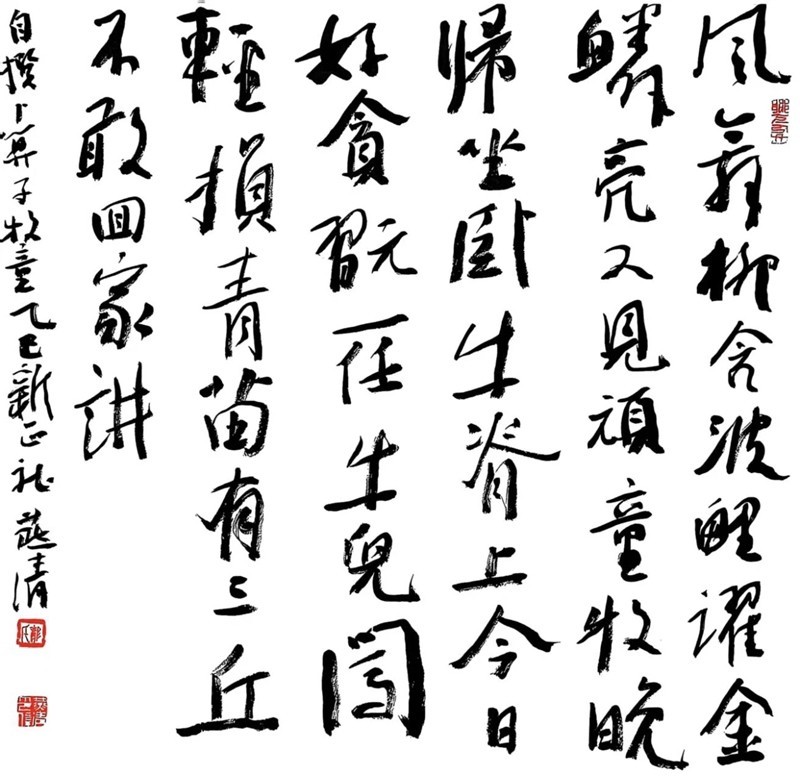 風舞柳含波鯉躍金
鱗亮又見頑童牧晚
歸坐卧牛脊上今日
好貪翫一任牛兒闖
輕損青苗有三丘
不敢囬家講
自撰卜筭子牧童乙巳新正清